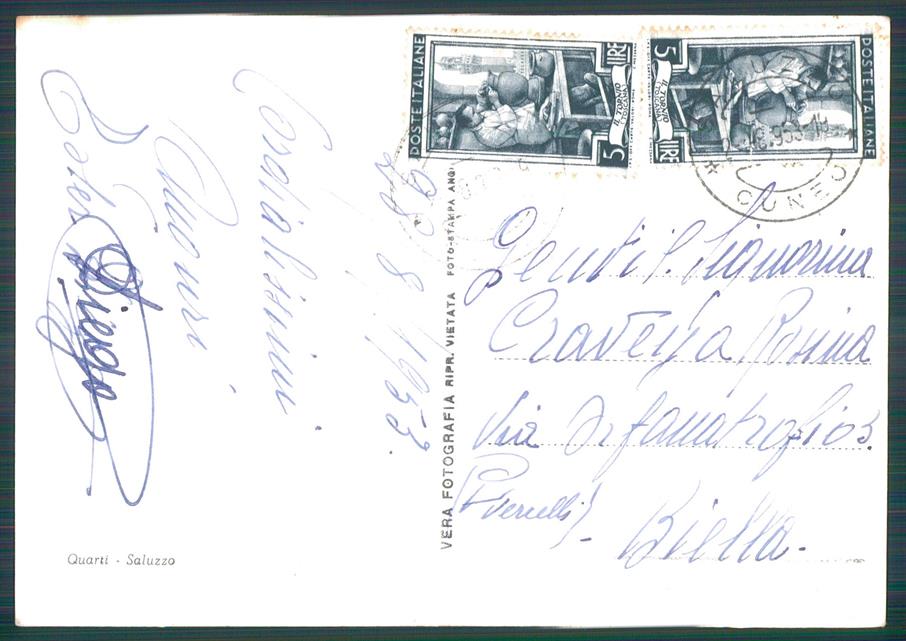 POSTE ITALIANE
IL TORNIO
TOSCANA
5 LIRE
POSTE ITALIANE
IL TORNIO
TOSCANA
5 LIRE
CUNEO
28 8 1953.
Cordialissimi
Auguri
Diego
VERA FOTOGRAFIA RIPR. VIETATA FOTO-STAMPA ANG
Gentil. Signorina
Craveja Rosina
Via Orfanatrofio 3.
(Vercelli) - Biella -
Quarti - Saluzzo